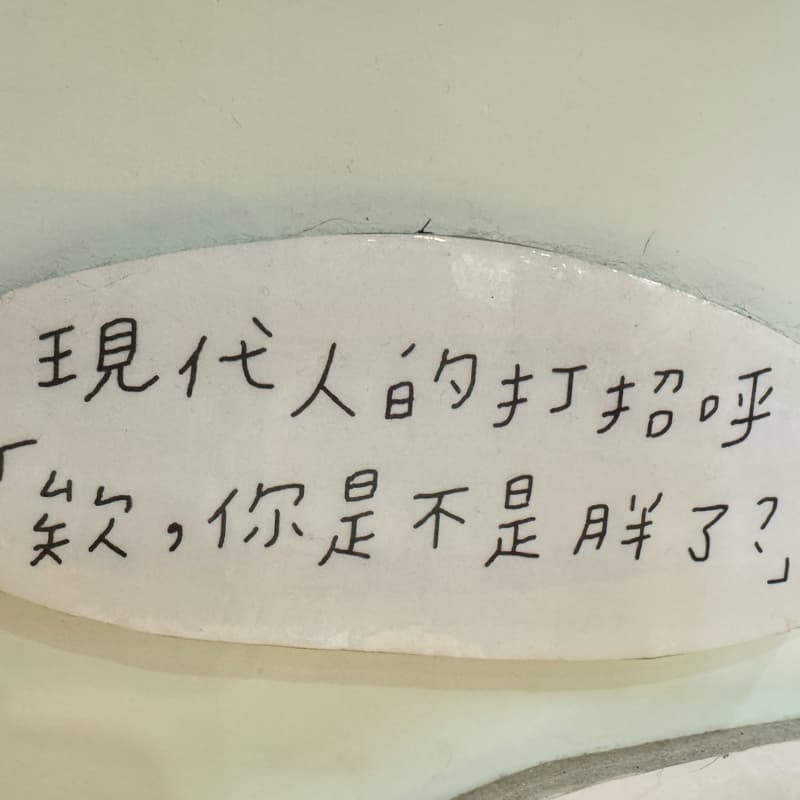 現代人的打招呼
「欸,你是不是胖了?」